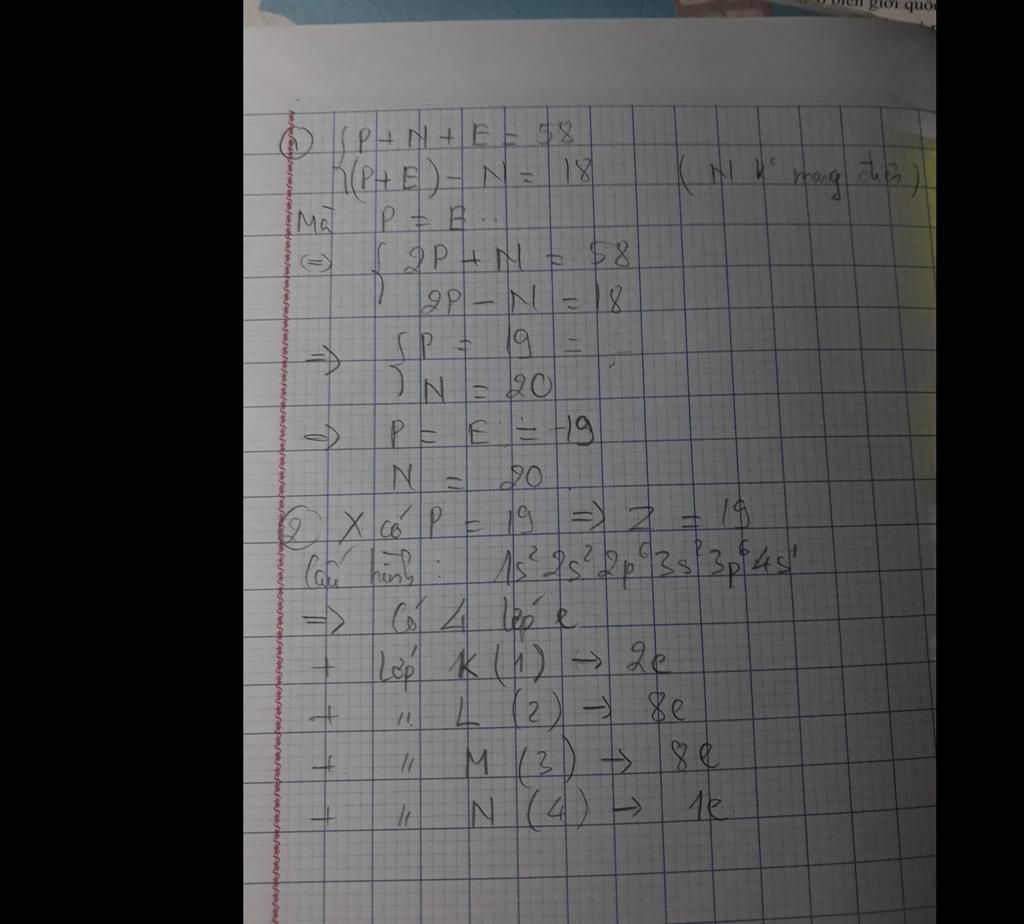 biên giới quốc
① { P + N + E = 58
(P+E) - N = 18 (N k° mang điện)
Mà P = E ..
⇔ { 2P + N = 58
2P - N = 18
=> { P = 19 =
N = 20
=> P = E = 19
N = 20
② X có P = 19 => Z = 19
Cấu hình: 1s² 2s² 2p⁶ 3s² 3p⁶ 4s¹
=> Có 4 lớp e
+ Lớp K (1) → 2e
+ " L (2) → 8e
+ " M (3) → 8e
+ " N (4) → 1e